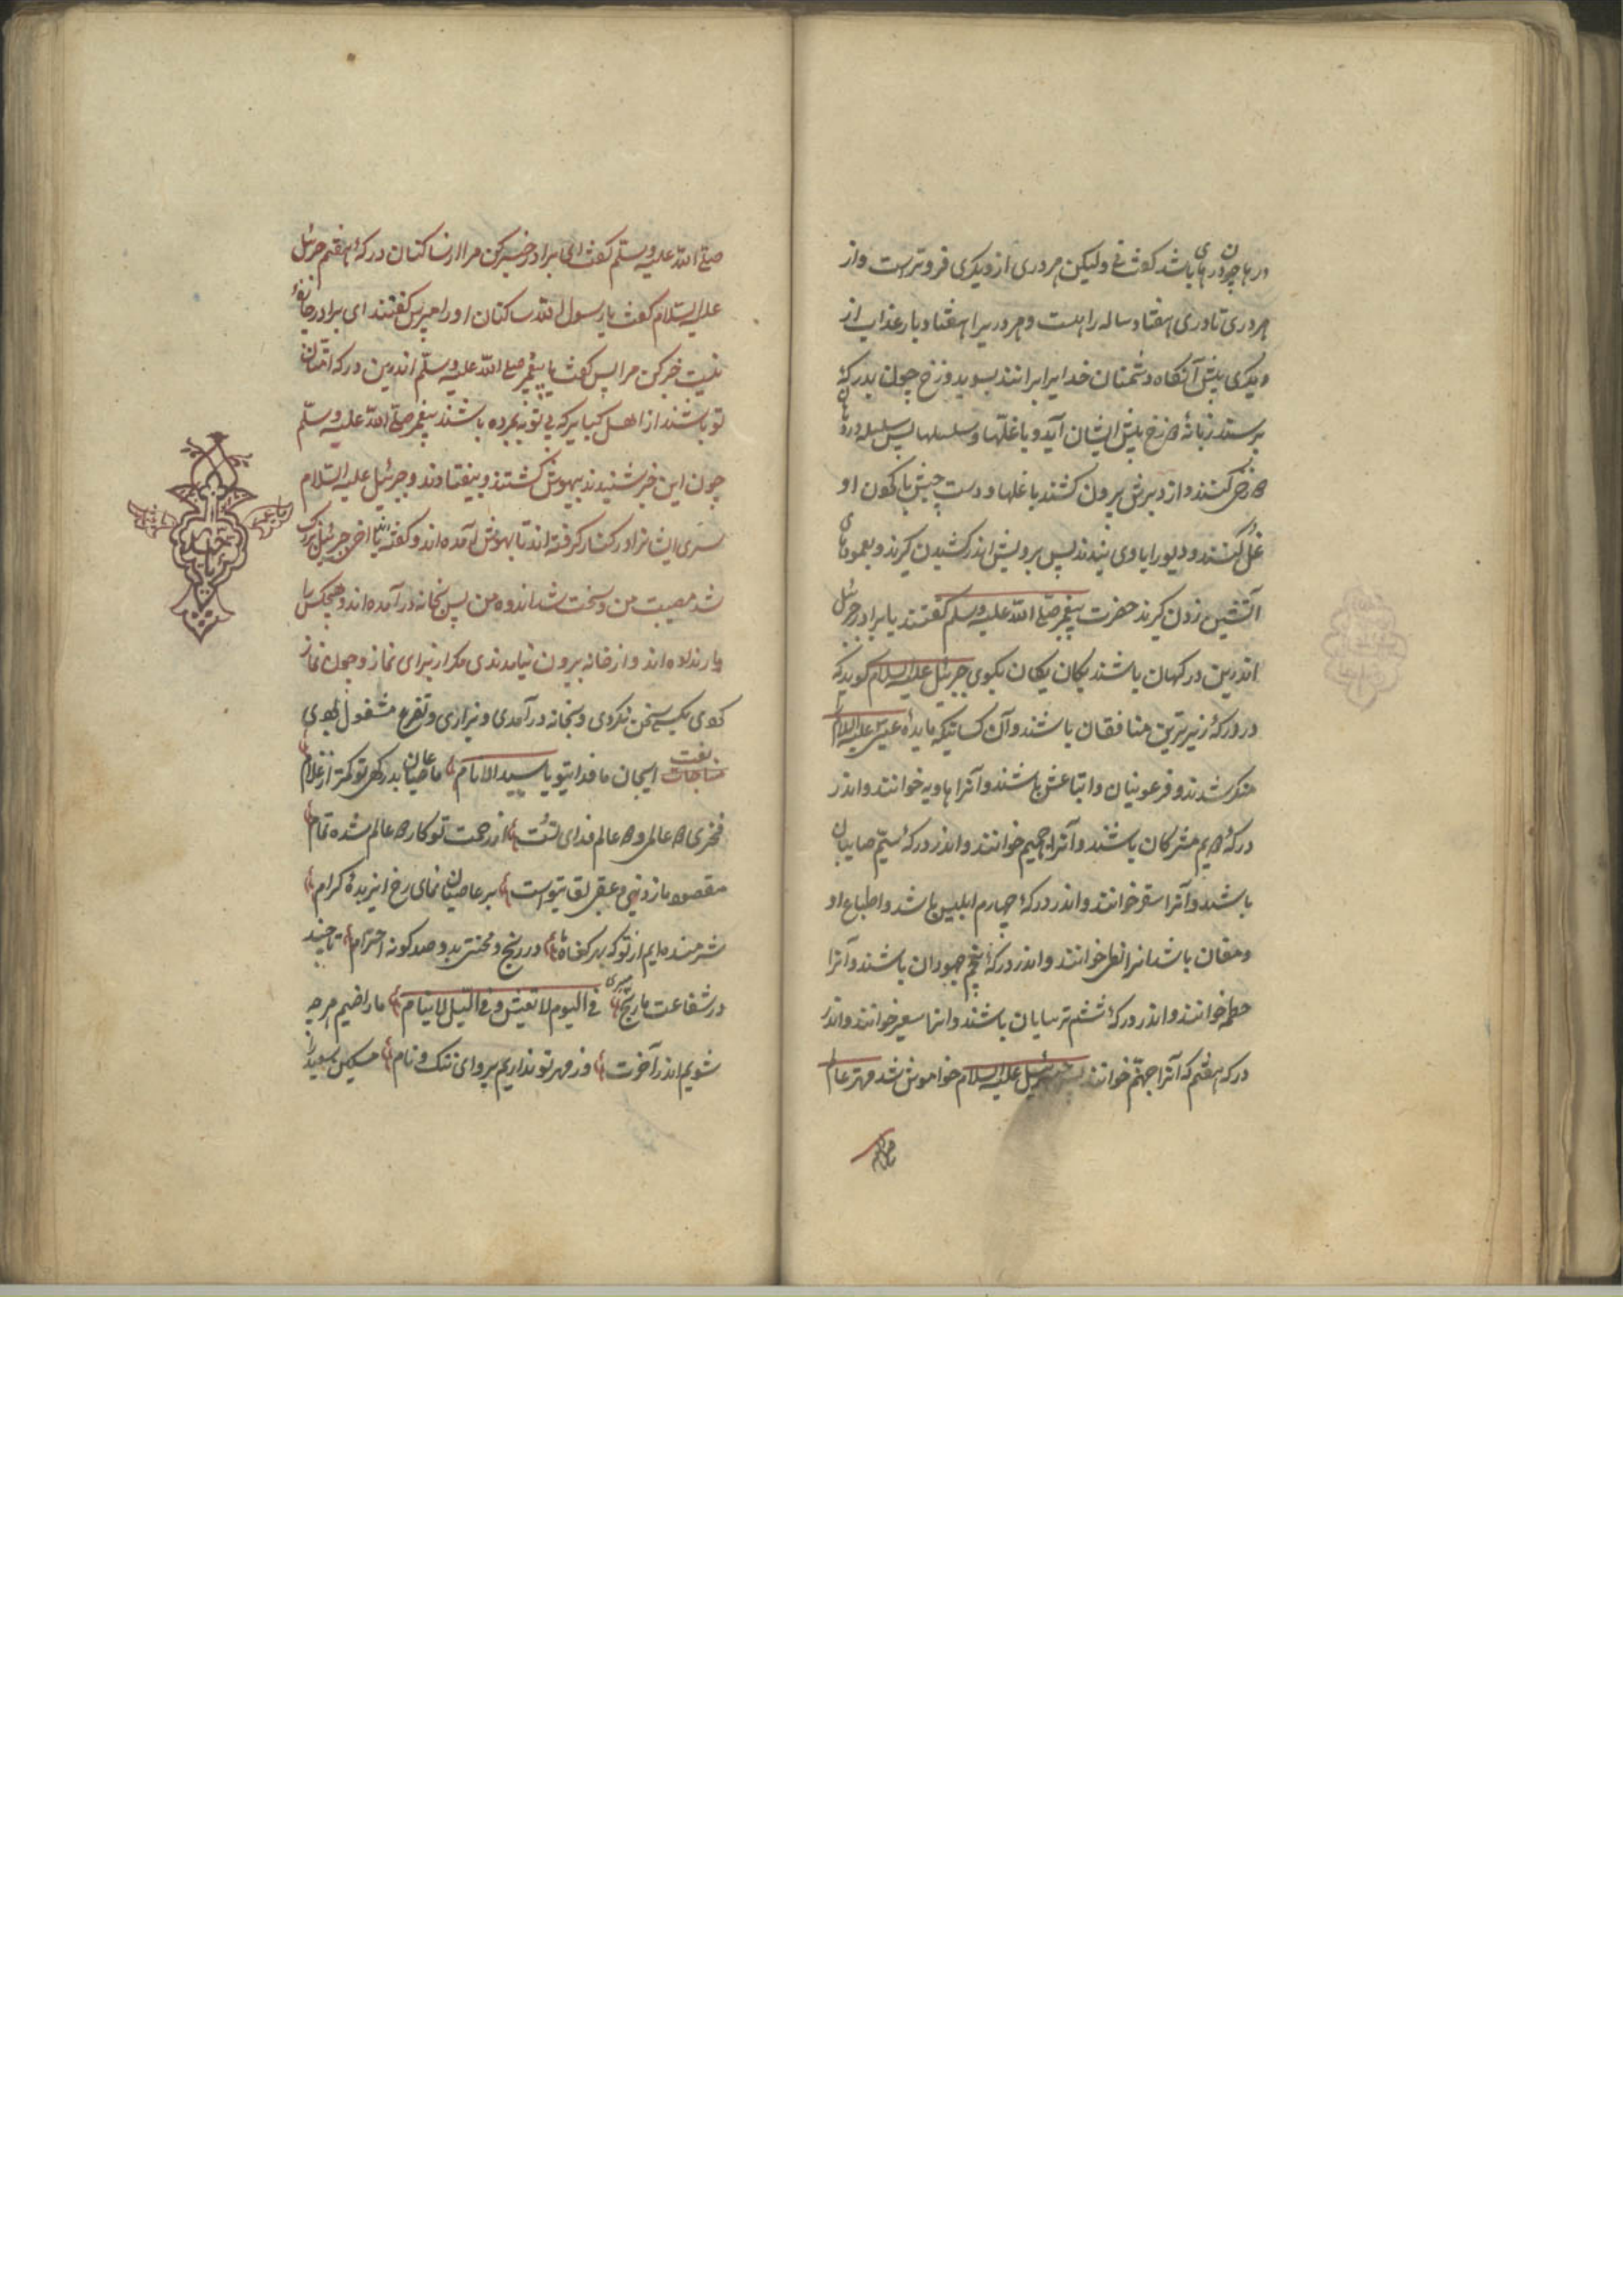 در ها چون درهای باشد گفت نی ولیکن هر دری از ویکری فروترست واز
هر دری تا دری هفتاد ساله راهست وهر دریرا هفتاد بار عذاب از
ویکری بیش آنگاه دشمنان خدایرا برانند بسوی دوزخ چون بدرکهٔ
برسند زبانهٔ دوزخ پیش ایشان آید وبا غلّها وسلسلها پس سلسله در دهان
کنند واز دبرش بیرون کشند با غلها ودست چپش با گون او
غل کنند ودیورا باوی بندند پس برویش اندر کشیدن گیرند وبعمودهای
آتشین زدن گیرند حضرت پیغمبر صلی الله علیه وسلم گفتند یا برادر جبرئیل
اندرین درکهان باشند یکان یکان بگوی جبرئیل علیه السلام گویدکه
در درکهٔ زیرترین منافقان باشند وآن کسانیکه مایدهٔ عیسی علیه السلام را
منکر شدند وفرعونیان واتباعش باشند وآنرا هاویه خوانند واندر
درکهٔ دویم مشرکان باشند وآنرا جحیم خوانند واندر درکهٔ سیّم صابیان
باشند وآنرا سقر خوانند واندر درکهٔ چهارم ابلیس باشد واطباع او
ومغان باشد انرا لظی خوانند واندر درکهٔ پنجم جهودان باشند وآنرا
حطمه خوانند واندر درکهٔ ششم ترسایان باشند وانرا سعیر خوانند واندر
درکه هفتم که آنرا جهنّم خوانند پس جبرئیل علیه السلام خواموش شد مهتر عالم
صلی الله علیه وسلم گفت ای برادر خبر کن مرا از ساکنان درکهٔ هفتم جبرئیل
علیه السلام گفت یا رسول الله ساکنان اورا مپرس گفتند ای برادر چاره
نیست خبر کن مرا پس گفت یا پیغمبر صلی الله علیه وسلم اندرین درکه امّتان
تو باشند از اهل کبایر که بی توبه مرده باشند پیغمبر صلی الله علیه وسلم
چون این خبر شنیدند بیهوش گشتند وبیفتادند وجبرئیل علیه السلام
سری ایشانرا در کنار گرفته اند تا بهوش آمده اند وگفته اند یا اخی جبرئیل بزرگ
شد مصیبت من وسخت شد اندوه من پس بخانه در آمده اند وهیچکس را
بار نداده اند واز خانه بیرون نیامدندی مکر از برای نماز وچون نماز
کردی بکسی سخن نکردی وبخانه در آمدی وبزاری وتضرع مشغول بودی
نعت
مناجات ایجان ما فدایتو یا سید الانام ما عاصیان بدرکهی تو کمتر از غلام
فخری دو عالمی ودو عالم فدای تست از رحمت تو کار دو عالم شده تمام
مقصود ما ز دنیی وعقبی لقایتواست بر عاصیان نمای رخ ایزبدهٔ کرام
شرمنده ایم از تو که بهر گناه ما در رنج ومحنتی بدو صد کونه احترام تا چند
در شفاعت ما رنج میبری فی الیوم لا تعیش وفی اللیل لا ینام ما راضیم هرچه
شویم اندر آخرت وز مهر تو نداریم پروای ننک ونام مسکین سعید را